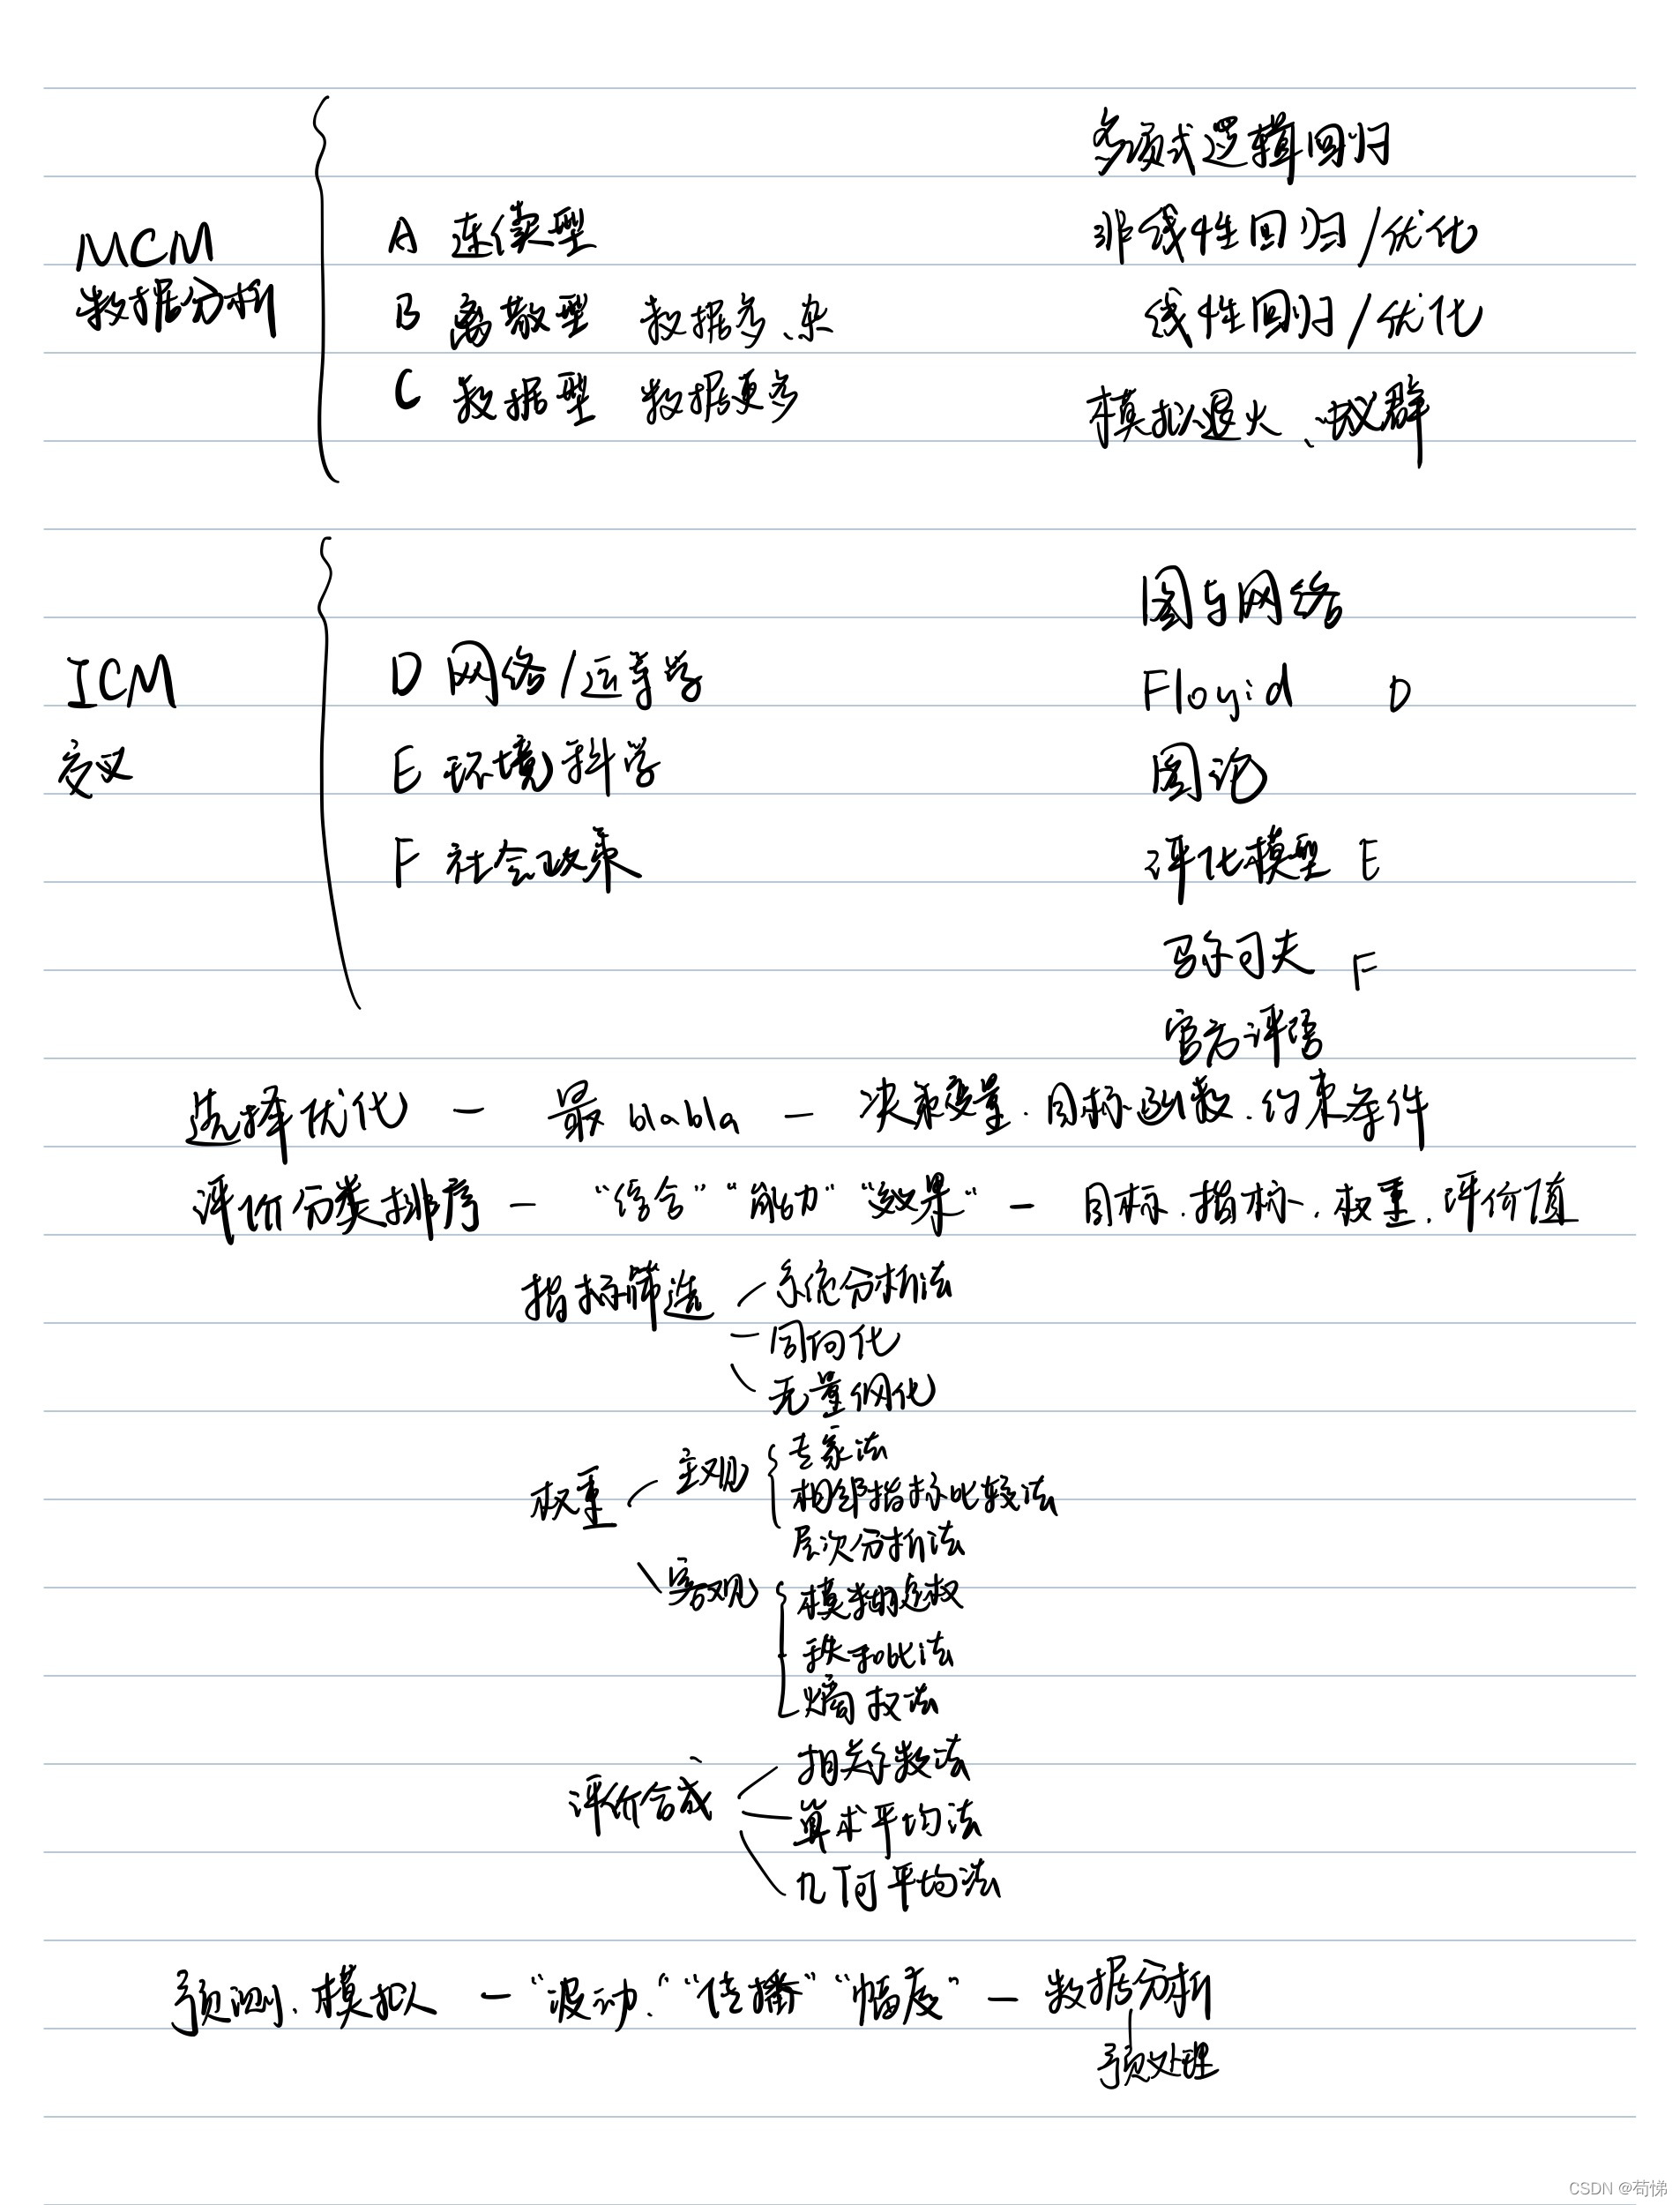 多项式逻辑回归
MCM
A 连续型
非线性回归/优化
数据分析
B 离散型 数据多、杂
线性回归/优化
C 数据型 数据更多
模拟退火、蚁群
图与网络
ICM
D 网络/运筹学
Floyid D
交叉
E 环境科学
图论
F 社会政策
评化模型 E
马尔可夫 F
官方评语
选择优化 — 最blabla — 决策变量.目标函数.约束条件
评价分类排序 — “综合”“能力”“效果” — 目标.指标.权重.评价值
指标筛选
系统分析法
同向化
无量纲化
权重
主观
专家法
相邻指标比较法
层次分析法
客观
模糊定权
秩和比法
熵权法
评价合成
相关系数法
算术平均法
几何平均法
预测、模拟 — “波动”“传播”“幅度” — 数据分析
预处理
CSDN @苟悌